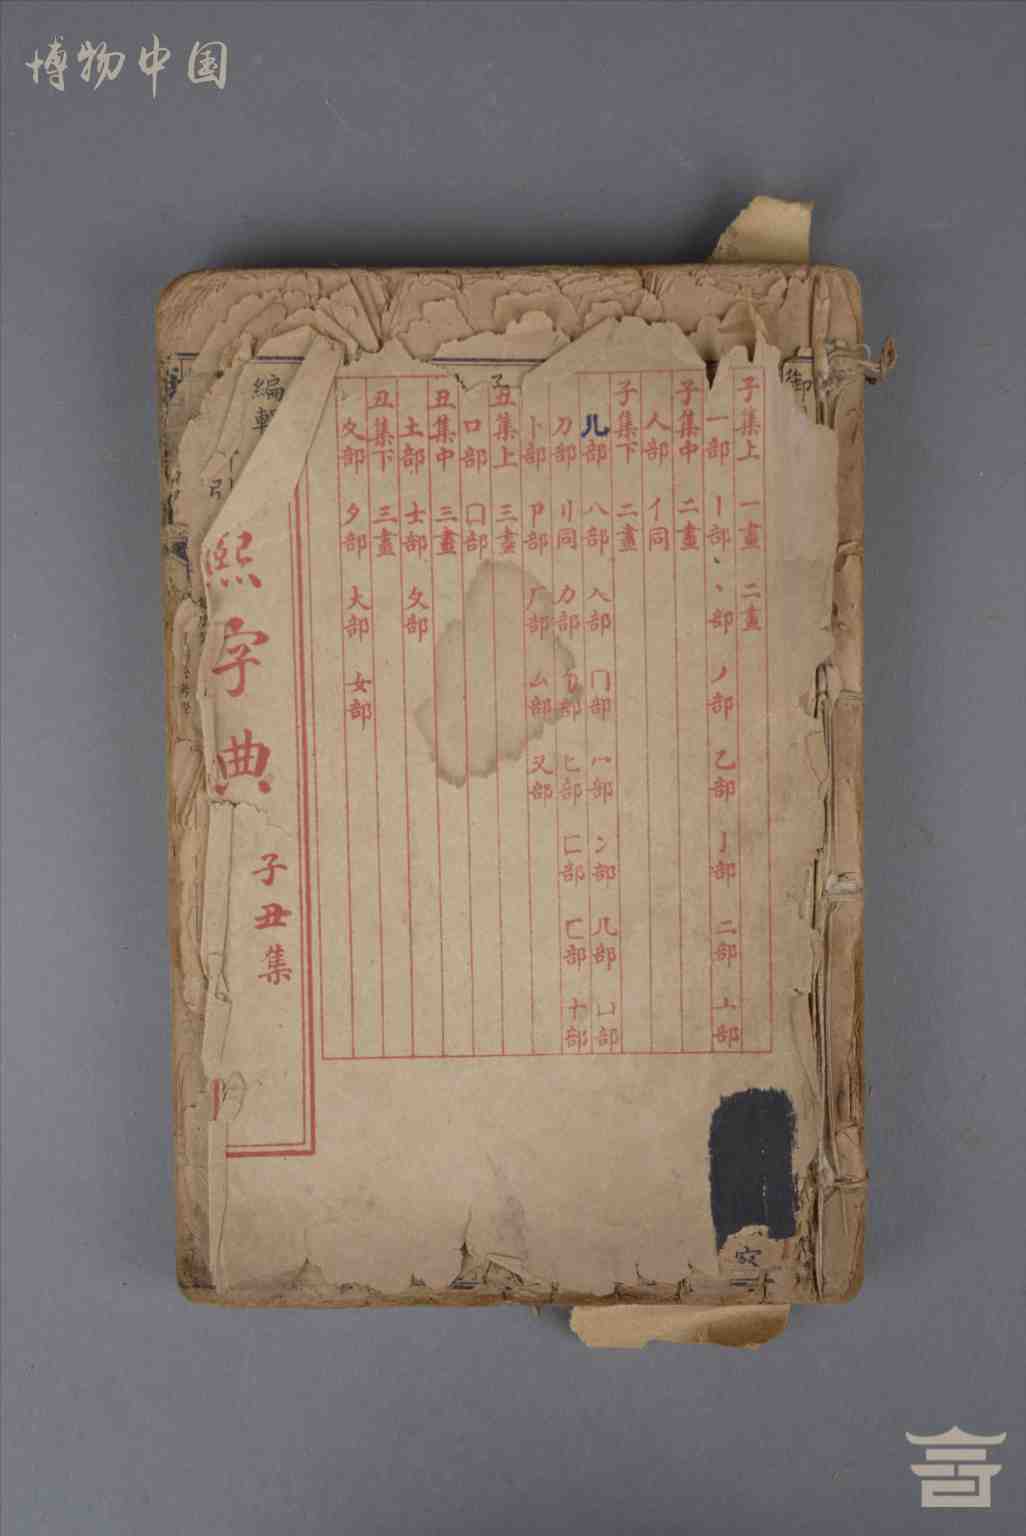 博物中国
子集上 一畫 二畫
一部 丨部 丶部 丿部 乙部 亅部 二部 亠部
子集中 二畫
人部 亻同
子集下 二畫
儿部 八部 入部 冂部 冖部 冫部 几部 凵部
刀部 刂同 力部 勹部 匕部 匚部 匸部 十部
卜部 卩部 厂部 厶部 又部
丑集上 三畫
口部 囗部
丑集中 三畫
土部 士部 夂部
丑集下 三畫
夊部 夕部 大部 女部
熙字典
子丑集
編輯
御
子